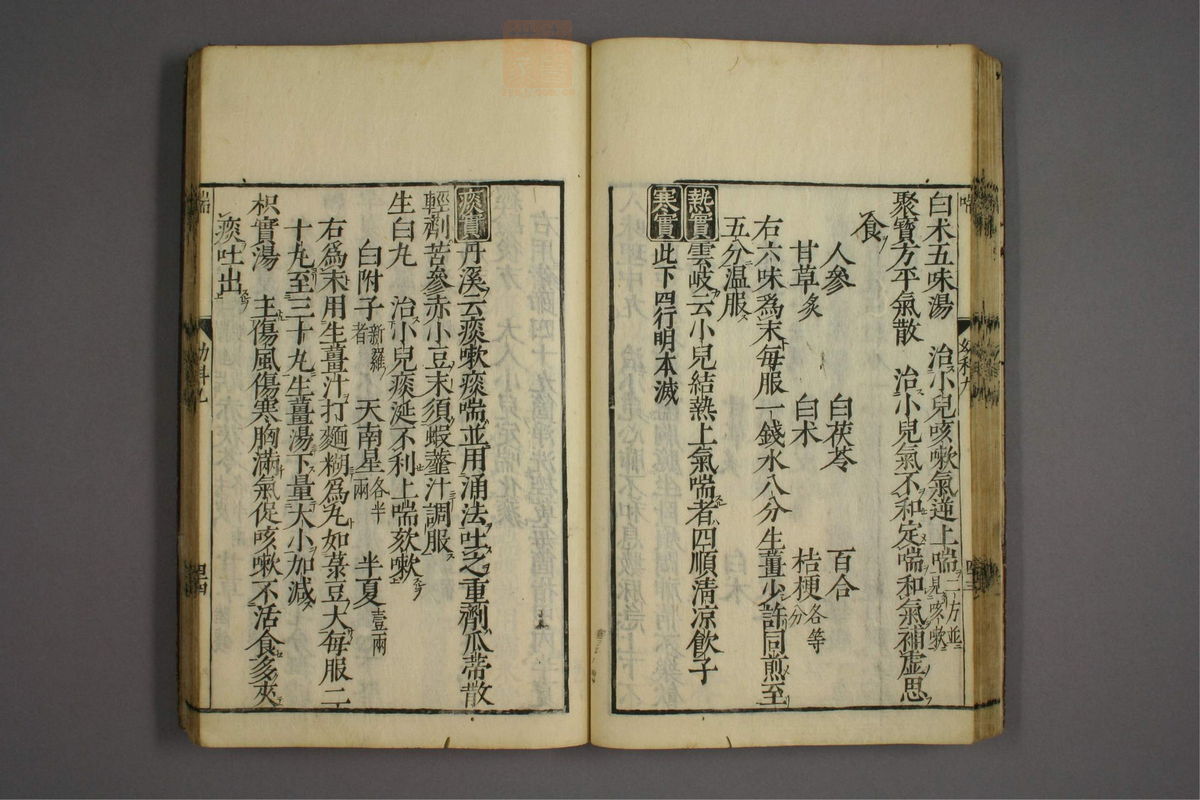 白朮五味湯　治小兒咳嗽氣逆上喘二方並見咳嗽
聚寶方平氣散　治小兒氣不和定喘和氣補虛思
食
人參　白茯苓　百合
甘草炙　白朮　桔梗各等分
右六味爲末每服一錢水八分生薑少許同煎至
五分温服
熱實　雲岐云小兒結熱上氣喘者四順清凉飲子
寒實　此下四行明本滅
痰實　丹溪云痰嗽痰喘並用涌法吐之重劑瓜蒂散
輕劑苦參赤小豆末須蝦虀汁調服
生白丸　治小兒痰涎不利上喘欬嗽
白附子新羅者　天南星各半兩　半夏壹兩
右爲末用生薑汁打麵糊爲丸如菉豆大每服二
十丸至三十丸生薑湯下量大小加減
枳實湯　主傷風傷寒胸滿氣促咳嗽不活食多夾
痰吐出